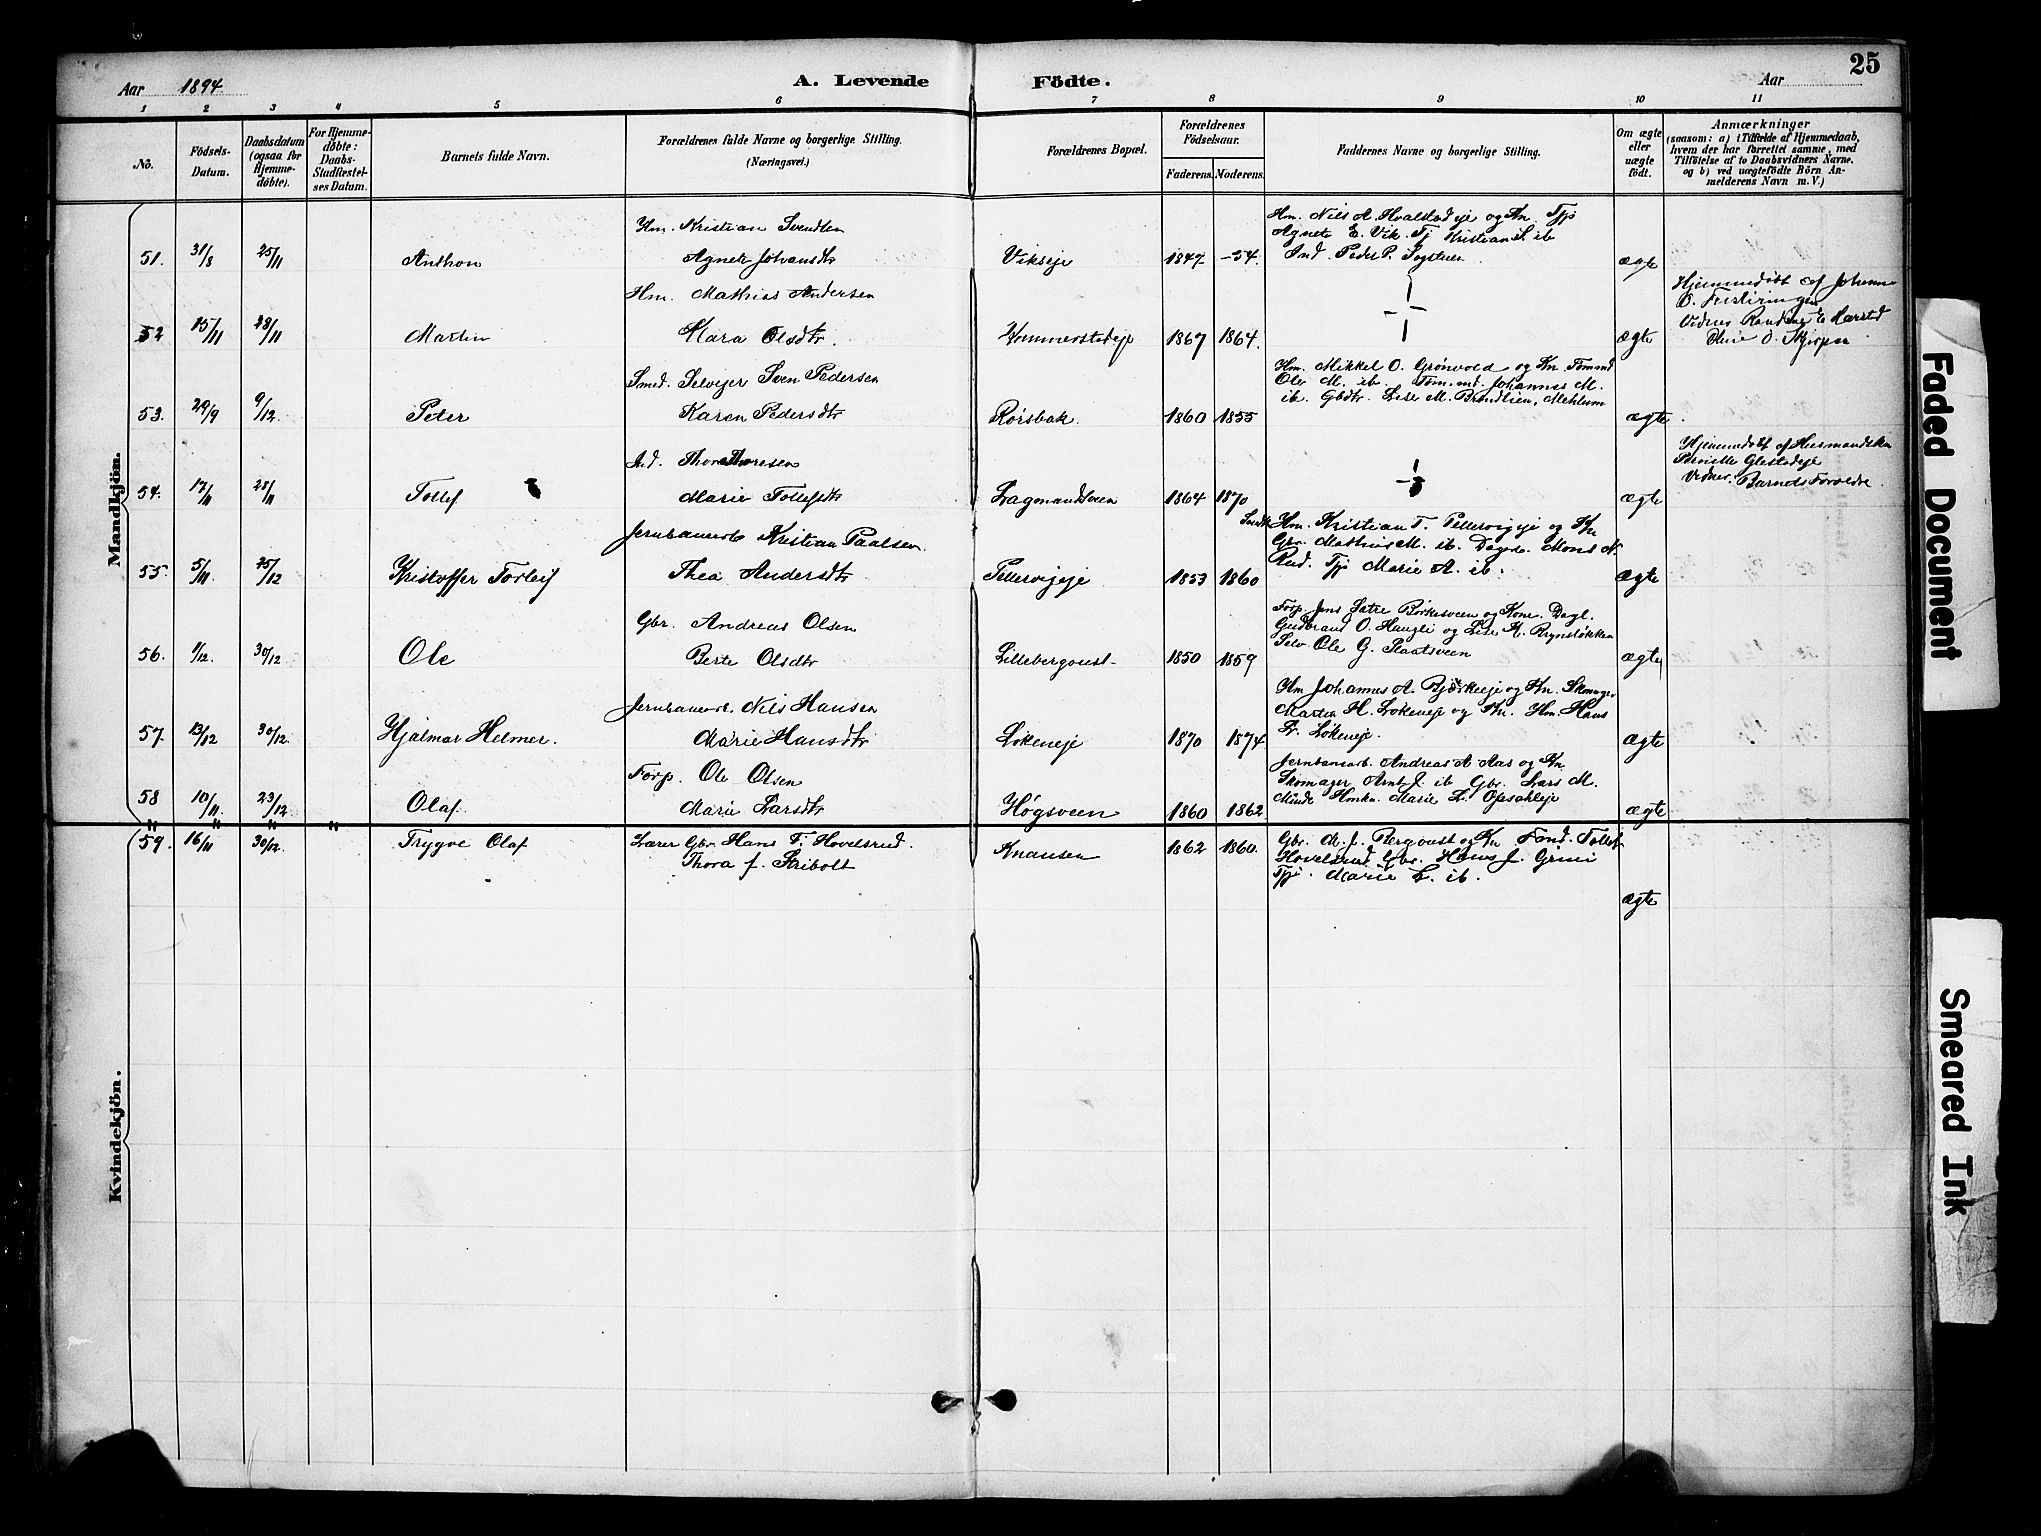 25
Aar 1894 A. Levende Födte. Aar
1 2 3 4 5 6 7 8 9 10 11
No. Födsels-Datum. Daabsdatum (ogsaa for Hjemme-döbte). For Hjemme-döbte: Daabs-Stadfæstel-ses Datum. Barnets fulde Navn. Forældrenes fulde Navne og borgerlige Stilling. (Næringsvei.) Forældrenes Bopæl. Forældrenes Födselsaar. Faderens. Moderens. Faddernes Navne og borgerlige Stilling. Om ægte eller uægte födt. Anmærkninger (saasom: a) i Tilfælde af Hjemmedaab, hvem der har forrettet samme, med Tilföielse af to Daabsvidners Navne, og b) ved uægtefödte Börn Anmelderens Navn m. V.)
Mandkjön.
Hm. Kristian Svendsen
Hm. Nils A. Hvalstadeje og Kn. Tjp
Agnete E. Vik. Tj Kristian S. ib
51. 31/8 25/11 Anthon Agnete Johansdtr Vikseje 1847 -54. Ind. Peder P. ægte
Hm. Mathias Andersen
Hjemmedöbt af Johanne
O.
52 15/11 28/11 Martin Mara Olsdtr. Hommerstadeje 1867 1864. ægte
Vidner O.
Smed. Selvejer Sven Pedersen
Hm. Mikkel O. Grønvold og Kn. Tømmd
Ole M. ib. Tøm.md. Johannes M.
53. 29/9 9/12 Peter Karen Pedersdtr Rørsbak. 1860 1855 ib. Gbdtr. Lise M. Brendlien, Mehlum ægte.
Ind. Thoresen
Hjemmedöbt af Husmandskn
Pernille Glestadeje
Vidner. Barnets Forældre.
54. 17/11 28/11 Tollef Marie Tollefsdtr Lagmandsveen 1864 1870 ægte
Jernbanearb Kristian Paalsen.
Hm. Kristian T. Pellervigeje og Kn
Gbr. Mathias M. ib. Dagarb. Mons N.
Rud. Tjp Marie A. ib.
55. 5/11 25/12 Kristoffer Torleif Thea Andersdtr Pellervigeje 1853 1860 ægte
Gbr. Andreas Olsen
Forp. Jens Sætre Birkesveen og Kone. Dagl.
Gudbrand O. Haugli og Lise H. Brynsløkken
Selv. Ole G. Plaatsveen
56. 1/12. 30/12 Ole Berte Olsdtr Lillebergvust 1850 1859 ægte
Jernbanearb. Nils Hansen
Hm Johannes A. Bjørkeeje og Kn. Skomager
Martin H. Løkeneje og Kn. Hm. Hans
L. Løkeneje.
57. 13/12 30/12. Hjalmar Helmer. Marie Hansdtr Løkeneje 1870 1874 ægte
Forp. Ole Olsen
Jernbanearb. Andreas A Aas og Kn
Skomager Arnt J. ib Gbr. Lars M.
Minde Hmkn. Marie L. Opsahleje
58 10/11. 23/12. Olaf. Marie Larsdtr Høgsveen 1860 1862 ægte
59. 16/11 30/12. Trygve Olaf Lærer Gbr. Hans T. Hovelsrud. Knausen 1862 1860. Gbr. M. J. Bergvust og Kn Tollef
Thora f. Skibolt
Hovelsrud Gbr. Hans J. Grini
Tjp. Marie L. ib.
ægte
Kvindekjön.
Faded Document
Smeared Ink